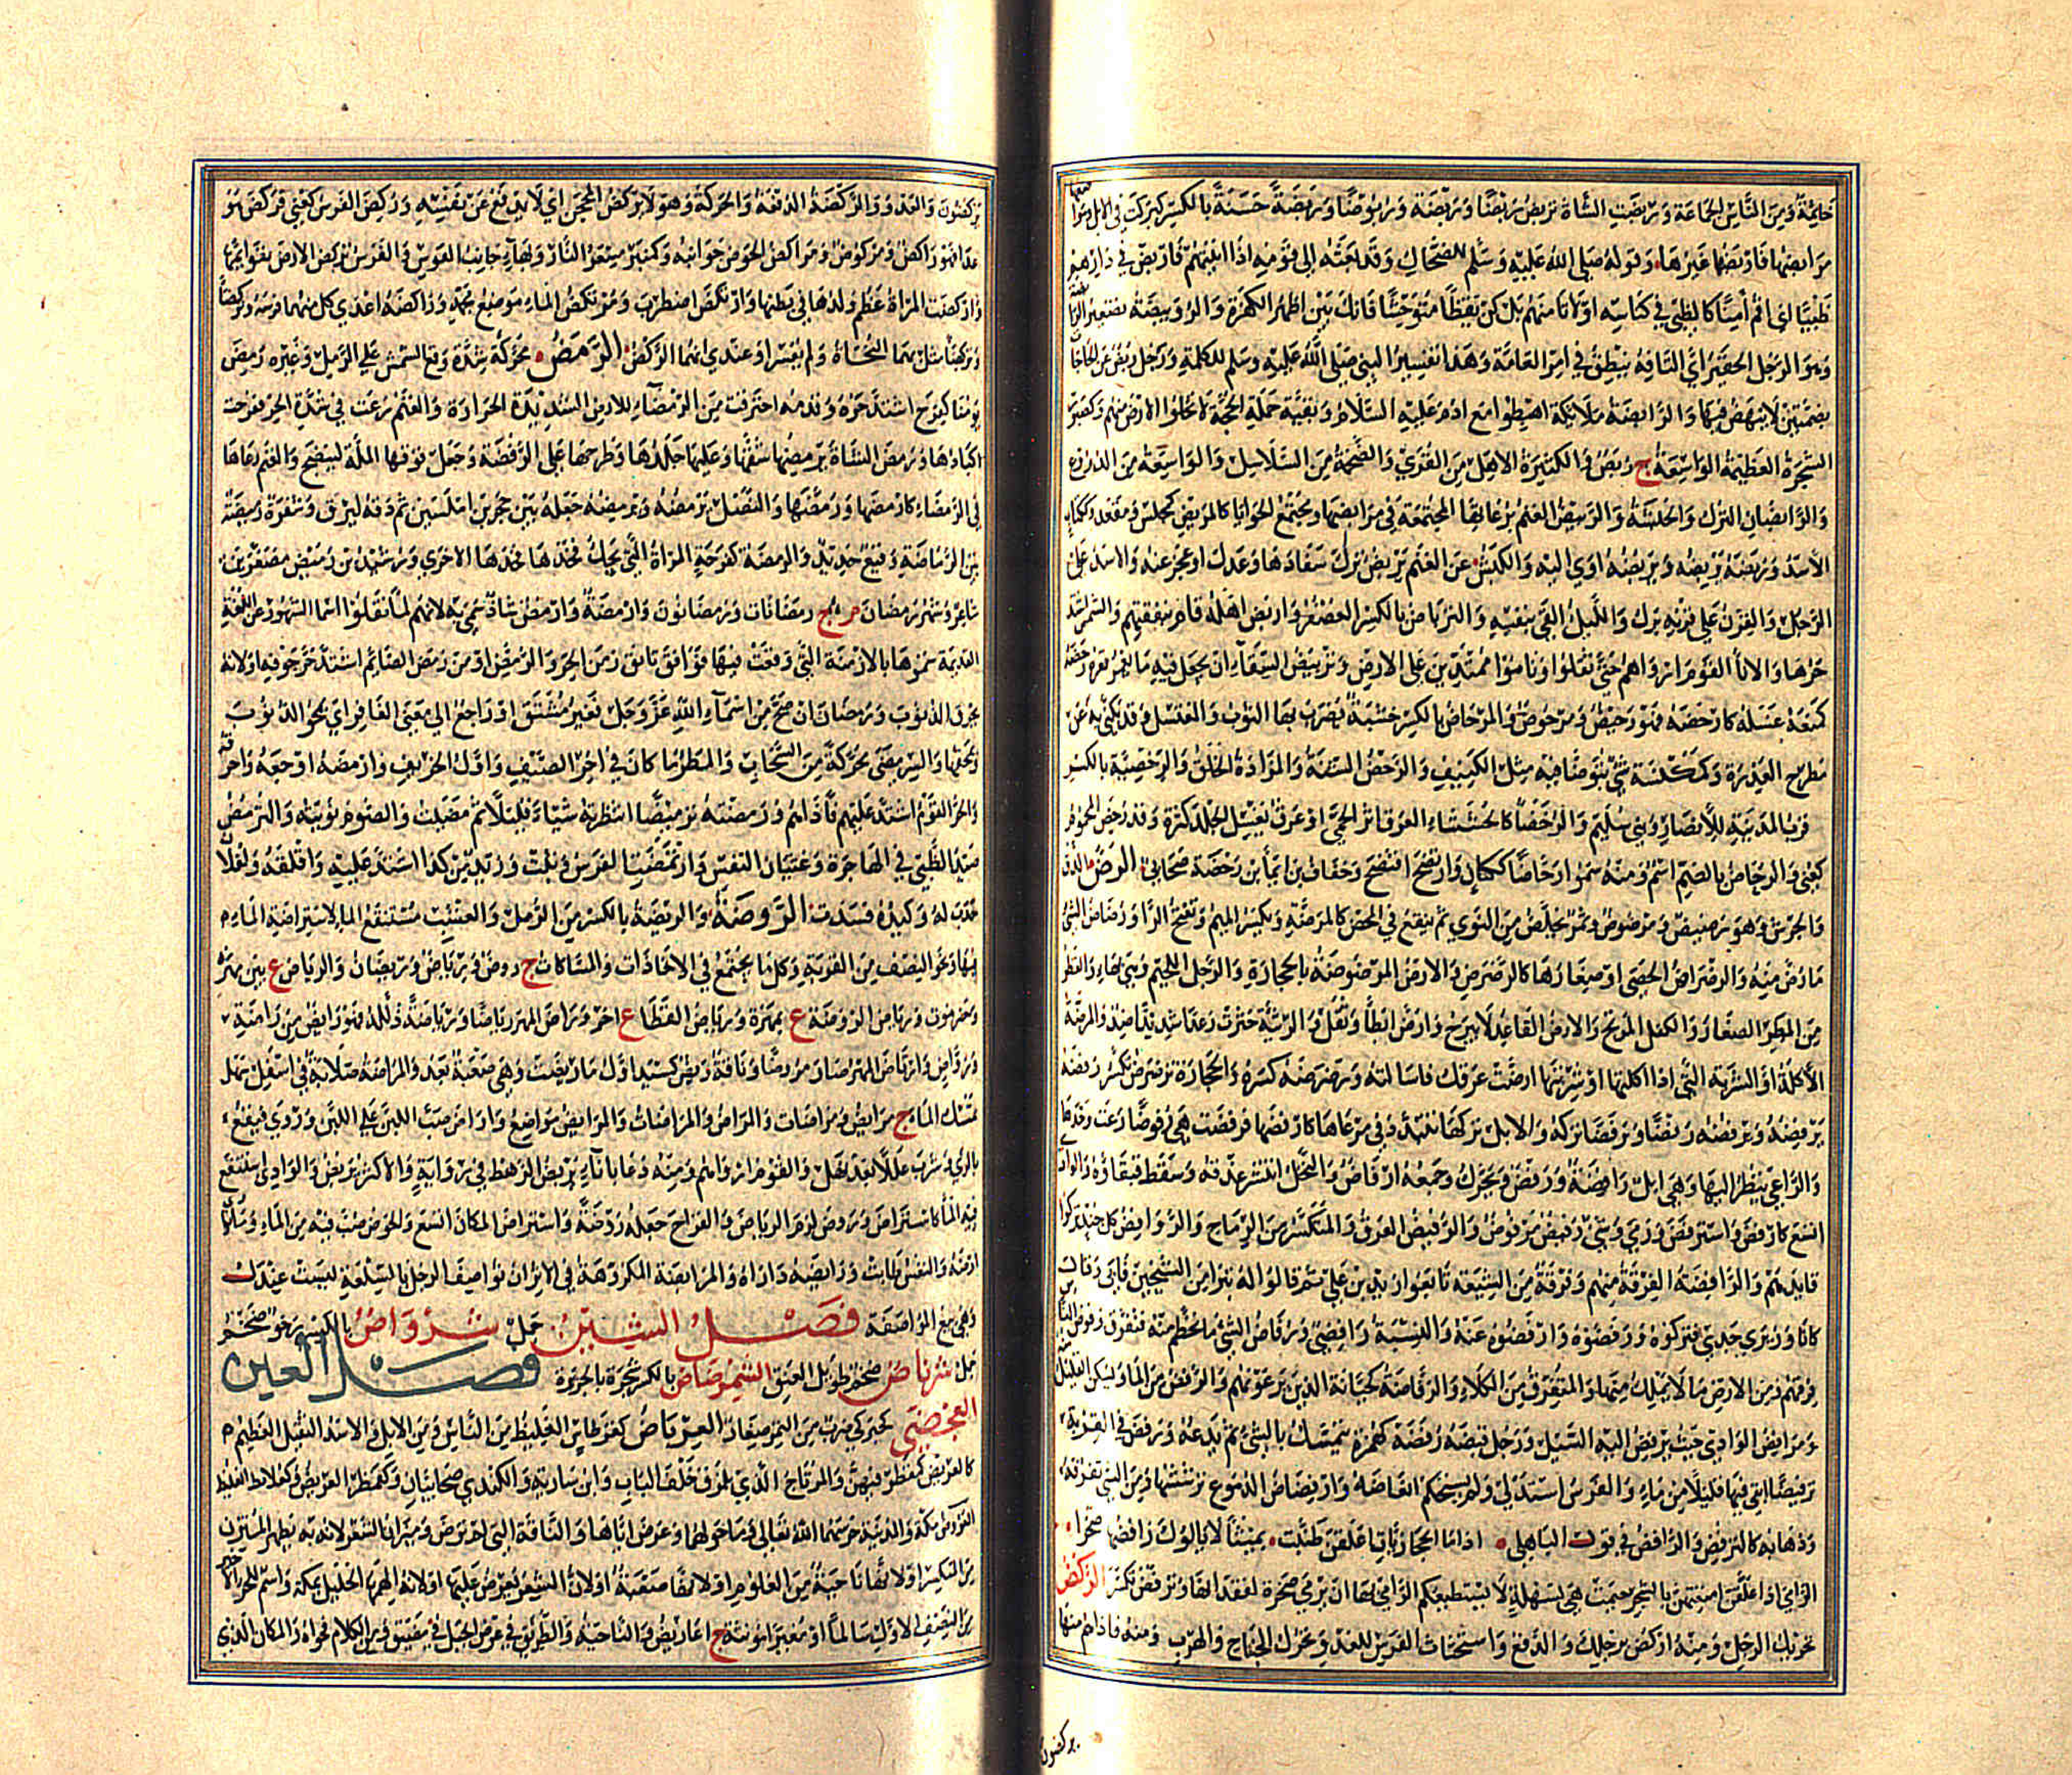 وَمِنَ النَّاسِ الجَمَاعَة وَرَبَضَتِ الشَّاة تربض رَبْضًا وَرَبْضَة وَرُبُوضًا وَرِبْضَةً حَسَنَةً بالكسر كبركت في الابل
مَرابضها فَارْبَضَهَا غَيرهَا وَقوله صَلى الله عَليه وَسَلم للضحَّاك وَقد بَعثه الى قَومه اذا اتيتهم فَاربض في دارهم
ظَبْيًا اي اقم آمنًا كالظبي في كناسه او لا تامنهم بَل كن يقظًا متوحّشًا فانك بَين اظهر الكفرة وَالرُّوَيبضَة تصغير
وَهو الرجل الحقير اي التافه ينطق في امر العامّة وَهذا تفسير النبي صَلى الله عَليه وسلم للكلمة وَرَجل رُبُض عن الحاجَات
بضمتين لا ينهض فيهَا وَالرابضَة ملائكة اهبطوا مع ادم عَليه السَّلام وَبقيَّة حَملة الحجّة لا تخلو الارض منهم وَكصَبور
الشجرَة العَظيمَة الوَاسِعَة ج رُبُض وَالكثيرَة الاهل من القُرَي وَالضخمة من السَّلاسل وَالوَاسِعَة من الدروع
وَالرَّابضَان الترك وَالحبشَة وَالرَّبيض الغنم برعاتها المجتمعة في مرابضها ومجتمع الحَوايا كالمربض كمجلس ومقعد
الأسَد وَرَبَضَهُ يَرْبِضُه وَيَرْبُضُه اوي اليه وَالكبش عن الغنم يربض ترك سفادَهَا وعدل او عجز عنه وَالاسد علي
الرَّجل وَالقِرن علي قِرنه برك وَالليل القى بنفسه وَالترباض بالكسر العصفر وَاربض اهله قام بنفقتهم وَالشمس اشتد
حرّهَا وَالاناء القَوم ارواهم حتى ثقلوا وَناموا ممتدين على الارض وَتربيض السقاء ان يجعل فيه ما يغمر قعره رحضَه
كَمَنَعَهُ غسَله كارحَضَه فهو رحيض وَمرحوض وَالمرحاض بالكسر خشبة يضرب بها الثوب وَالمغتسل وَقد يكنى به عن
مَطرح العَذِرة وَكمكنسَة شيء يتوضّأ فيه مثل الكنيف وَالرَّحض الشنّة وَالمزادَة الخلق وَالرحضيّة بالكسر
قرية بالمدينة للأنصار وَبني سُليم وَالرُّحَضاء كالخششَاء العرق اثر الحمّي او عرق يغسل الجلد كثرة وَقد رُحض المحموم
كعني وَالرحاض بالضم اسم وَمنه سموا رحاضًا ككتان وَارتحض افتضح وَخفاف بن ايماء بن رَحضة صحابي الرَّضّ الدَّق
وَالجرش وَهو رضيض وَمرضوض وَتمر يخلّص من النوى ثم ينقع في المحض كالمرضّة وَبكسر الميم وَتفتح الرا وَرضاض الشيء
ما رُضّ منه وَالرضراض الحصى او صغارها كالرَّضرض وَالارض المرضوضة بالحجارة وَالرجل اللحيم وهي بهاء وَالقطر
مِنَ المطر الصغار وَالكفل المرتج وَالارض القاعد لا يبرح وَارضّ ابطأ وَثقل وَالرثيئة خثرت وَعدا شديدًا ضد وَالمرضّة
الأكلة او الشربة التي اذا اكلتها او شربتها ارضّت عرقك فاسَالته وَرضرضه كسره وَالحجارة ترضرض تكسّر رفضه
يَرْفِضُهُ وَيَرْفُضُه رَفْضًا وَرَفَضًا تركه وَالابل تركها تبدَّد في مرعاها كارفضها فرفضت هي رفوضًا رَعت وَحدهَا
وَالراعي ينظر اليها وَهي ابل رَافِضَة وَرَفَض وَيحرّك وَجمعه ارفاض وَالنخل انتشر عذقه وَسقط قيقاؤه وَالوادي
اتسع كارفضّ وَاسترفض وَرمي وَشيء رفيض مرفوض وَالرفيض العرق وَالمتكسّر من الرماح وَالروافض كل جند تركوا
قايدهم وَالرَّافضَة الفرقة منهم وَفرقة من الشيعة تابعوا زيد بن علي ثم قالوا له تبرأ من الشيخين فابى وَقال
كانا وَزيري جدي فتركوه وَرفضوه وَارفضّوا عنه وَالنسبة رافضي وَرفاض الشيء ما تحطّم منه فتفرق وَرفوض الناس
فرقهم وَمن الارض ما لا يملك منها وَالمتفرق من الكلاء وَالرفّاضة كجبّانة الذين يَرعونهم وَالرفض من الماء وَاللبن القليل
وَمرافض الوادي حيث يرفض اليه السَّيل وَرجل قُبَضَة رُفَضَة كهمزة يتمسّك بالشيء ثم يدَعه وَرفّض في القِربة
ترفيضًا ابقى فيها قليلًا من ماء وَالفرس ادلى وَلم يستحكم انعاظه وَارفضاض الدموع ترششها وَمن الشيء تفرقه
وَذهابه كالترفّض وَالرافض في قول الباهلي اذا ما الحجازيات اعلقن طنّبت بميثاء لا يالوك رافضها صخرا
الرامي اذا علّقن امتعتهن بالشجر بعيث هي سهلة لا يستطيعكم الرامي بها ان يرمي صخرة لفقدانها وَترفّض تكسّر الرَّكْض
تحريك الرجل وَمنه اركض برجلك وَالدفع وَاستحثاث الفرس للعدو وَتحرك الجناح وَالهرب وَمنه فاذاهم منها
يركضون
يَركضون وَالعَدْو وَالرَّكضة الدفعَة وَالحركة وَهو لا يركض المحجن اي لا يدفع عن نفسه وَرُكض الفرس كعني فركض هو
عدا فهو راكض وَمركوض وَمراكض الحوض جوانبه وَكمنبر مسعر النار وَبهاء جانب القوس وَالفرس تركض الارض بقوائمها
وَاركضت المراة عظم ولدها في بطنها وَارتكض اضطرب وَمرتكض الماء موضع مجمّه وَراكضه اعدى كل منهما فرسه وَتركضاء
وَتركضاء مثل بهما النحاة وَلم يفسر او عندي انهما الركض الرَّمَض محركة شدة وقع الشمس علي الرمل وَغيره رمِض
يومنا كفرح اشتد حرّه وَقدمه احترقت من الرمضاء للارض الشديدة الحرارة وَالغنم رعت في شدة الحر فقرحت
اكبادها وَرمض الشاة يرمضها شقّها وَعليها جلدها وَطرحها على الرَّضفة وَجعل فوقها الملّة لتنضج وَالغنم رعاها
في الرمضاء كارمضها وَرمَّضها وَالنصل يَرْمضه وَيرمضه جعله بين حجرين املسين ثم دقه ليرق وَشفرة رميضة
بين الرّماضة وَقيع حديد وَالرمضة كفرحة المراة التي يحكّ فخذها فخذها الاخري وَرشيد بن رميض مصغرين
شاعر وَشهر رمضان م ج رمضانات وَرمضانون وَارمضة وَارمض شاذّ سمي به لانهم لما نقلوا اسما الشهور عن اللغة
القديمة سَموها بالازمنة التي وقعت فيها فوافق ناتق زمن الحر وَالرمض او من رمض الصائم اشتد حرّ جوفه او لانه
يحرق الذنوب وَرمضان ان صحّ من اسماء الله عز وجل فغير مشتق او راجع الي معنى الغافر اي يمحو الذنوب
وَيمحقها وَالرمضيّ محركة من السحاب وَالمطر ما كان في اخر الصيف وَاول الخريف وَارمضه اوجعه وَاحرقه
وَالحر القوم اشتد عليهم فآذاهم وَرمّضته ترميضًا انتظرته شيئًا قليلًا ثم مضيت وَالصوم نويته وَالترمّض
صيد الظبي في الهاجرة وَغثيان النفس وَارتمضت الفرس وثبت وَزيد من كذا اشتد عليه وَاقلقه وَلفلان
حدب له وَكبده فسدت الرَّوضَة وَالريضة بالكسر من الرمل وَالعشب مستنقع الماء لاستراضة الماء
فيها وَنحو النصف من القربة وَكل ما يجتمع في الاخاذات وَالمساكات ج روض وَرياض وَريضان وَالرياض ع بين مهرة
وَحضرموت وَرياض الروضة ع بمهرة وَرياض القطا ع اخر وَراض المهر رياضًا وَرياضة ذلله فهو رايض من راضة
وَروّاض وَارتاض المهر صار مروضًا وَناقة ريّض كسيد اول ما ريضت وَهي صعبة بعد وَالمراضة صلابة في اسفل سهل
تمسك الماء ج مرايض وَمراضات وَالمراض وَالمراضات وَالمرايض مواضع وَاراض صبّ اللبن علي اللبن وَروي فنقع
بالري وَشرب عللًا بعد نهل وَالقوم ارواهم وَمنه دعا باناء يريض الرهط في رواية وَالاكثر يربض وَالوادي استنقع
فيه الماء كاستراض وَروّض لزم الرياض وَالقراح جعله روضة وَاستراض المكان اتسع وَالحوض صبّ فيه من الماء
ارضه وَالنفس طابت وَراوضه داراه وَالمراوضة المكروهة في الاثر ان تواصف الرجل بالسلعة ليست عندك
وَهي بيع المواصفة فَصْلُ الشِّين جمل شِرْوَاضٌ بالكسر رخو ضخم
جمل شِرْنَاضٌ ضخم طويل العنق الشُّمرضَاض بالكسر شجرة بالجزيرة فصل العين
العَجَمْضَى كحَبَركي ضرب من التمر صغار العِرْبَاضُ كقرطاس الغليظ من الناس وَمن الابل وَالاسد الثقيل العظيم
كالعربض كقمطر فيهن وَالمرتاج الذي يلزق خلف الباب وَابن سارية وَالكندي صحابيان وَكقمطر العريض وَكعلابط الغليظ
العَروض مكّة وَالمدينة حرسهما الله تعالى وَما حولهما وَعرض اتاها وَالناقة التي لم ترض وَميزان الشعر لانه به يظهر المتّزن
من المنكسر او لانها ناحية من العلوم او لانها صعبة او لان الشعر يعرض عليها او لانه الهمها الخليل بمكة وَاسم للجزء الاخير
من النصف الاول سالمًا او مغيرًا مونثة ج اعاريض وَالناحية وَالطريق في عرض الجبل في مضيق وَمن الكلام فحواه وَالمكان الذي